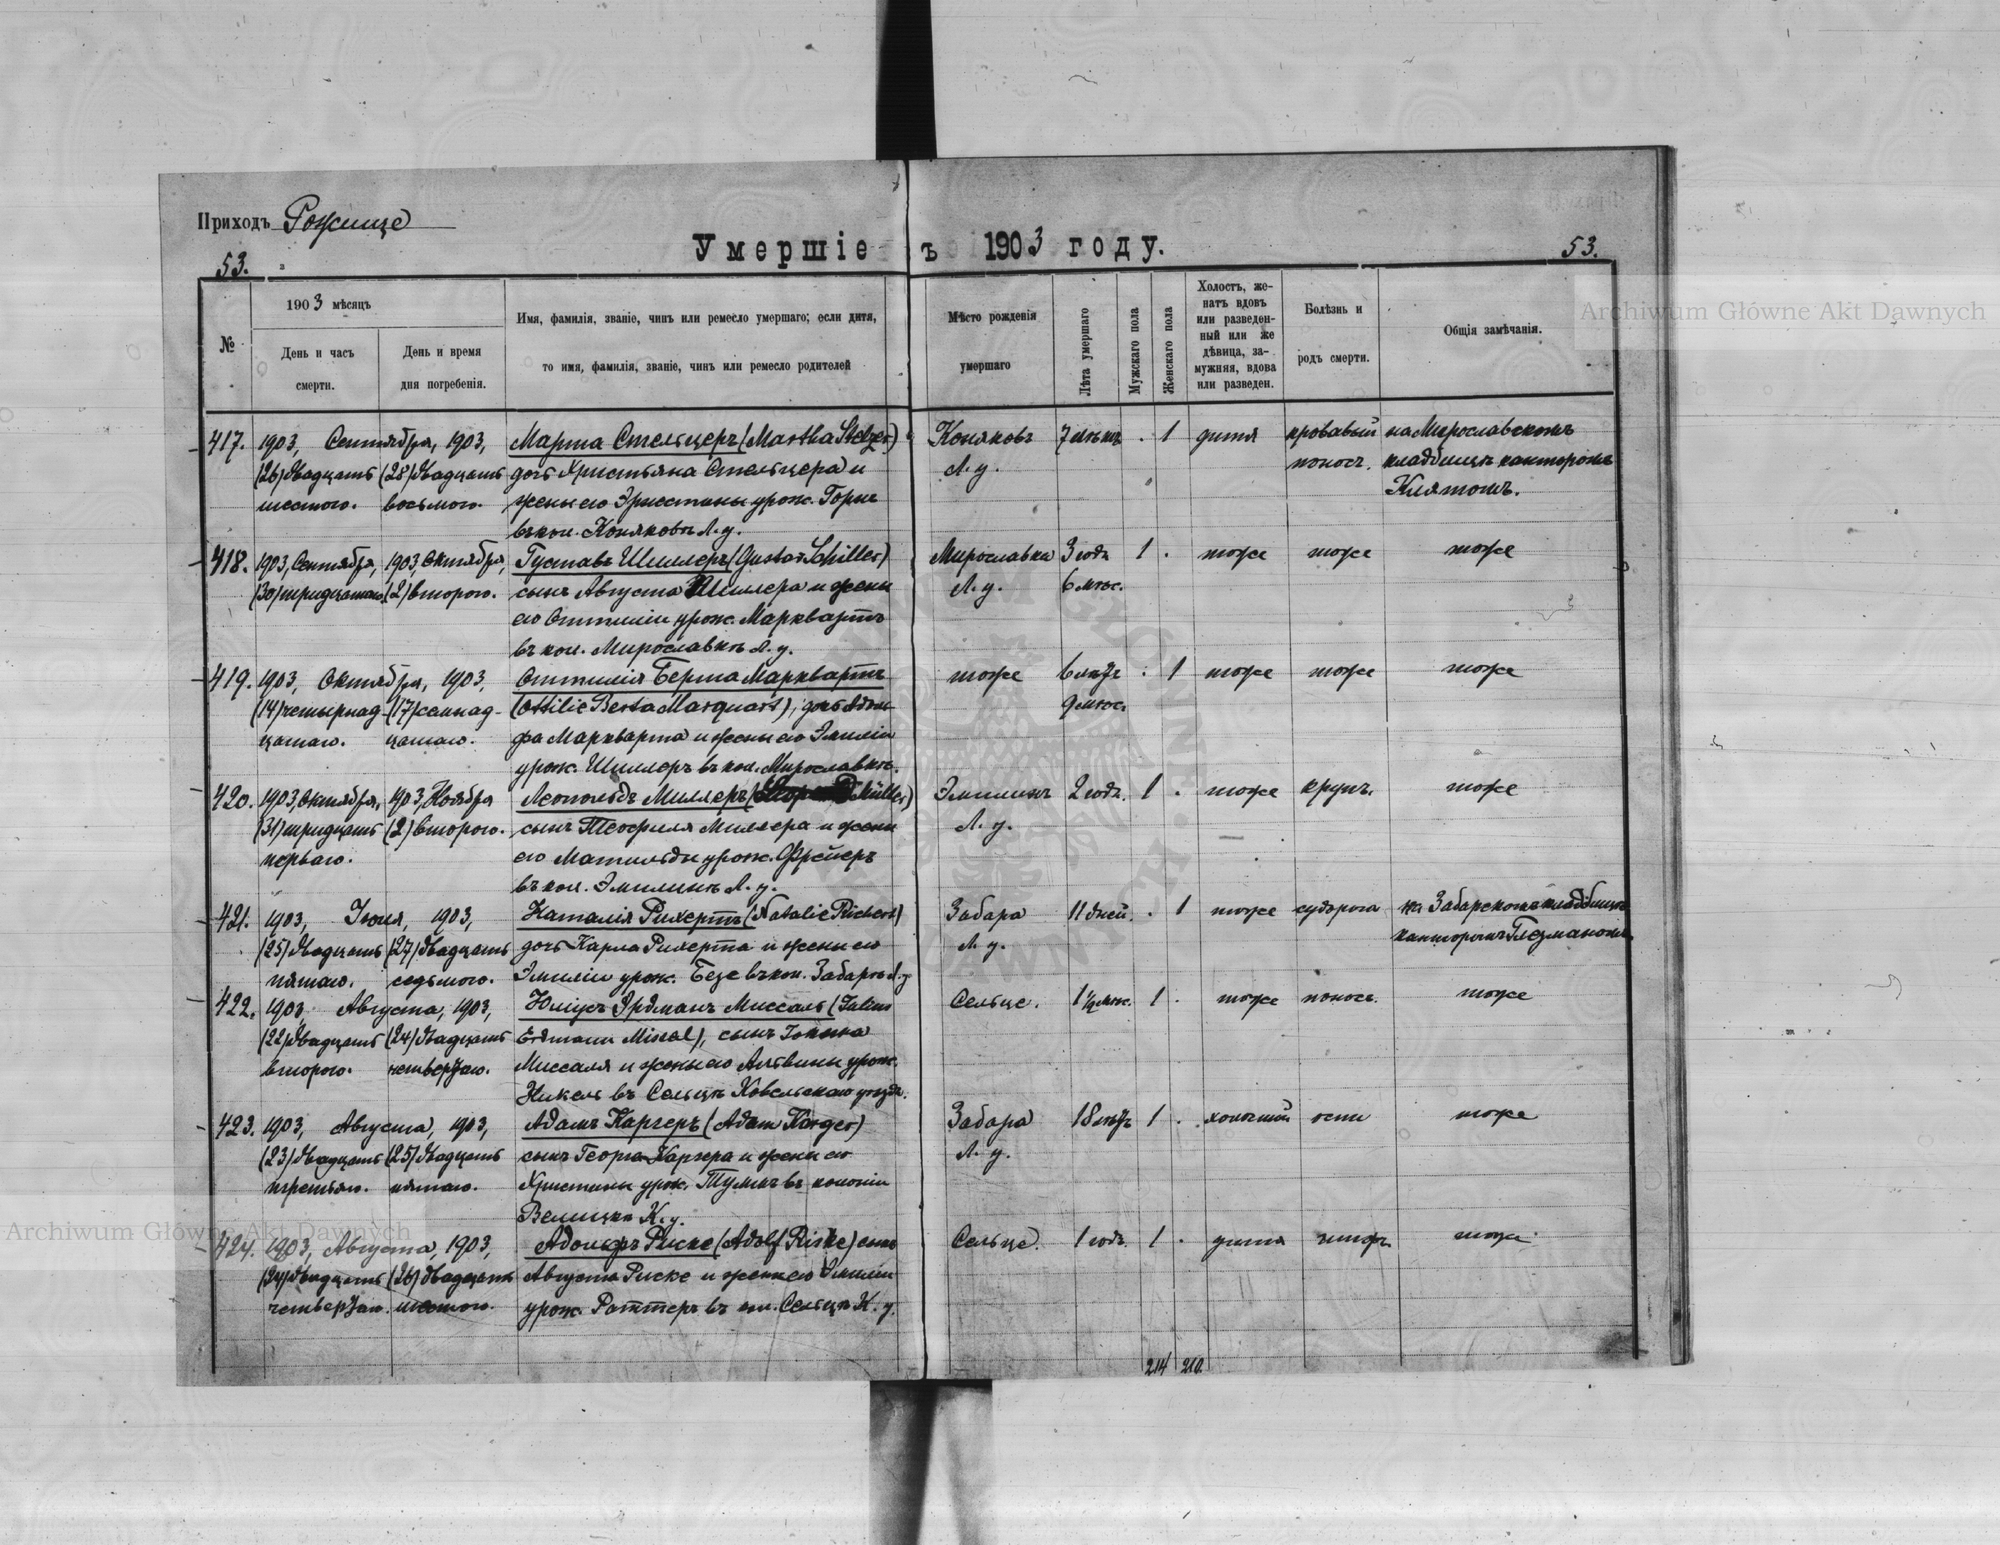 Приходъ Рожище
Умершіе въ 1903 году.
53.
53.
№
1903 мѣсяцъ
День и часъ смерти.
День и время дня погребенія.
Имя, фамилія, званіе, чинъ или ремесло умершаго; если дитя,
то имя, фамилія, званіе, чинъ или ремесло родителей
Мѣсто рожденія умершаго
Лѣта умершаго
Мужскаго пола
Женскаго пола
Холостъ, же-
натъ вдовъ
или разведен-
ный или же
дѣвица, за-
мужняя, вдова
или разведен.
Болѣзнь и
родъ смерти.
Общія замѣчанія.
417. 1903, Сентября, 1903, Марта Стельцеръ (Martha Stelzer) Коняковъ 7 . 1 дитя кровавый на Мирославскомъ
(26) двадцать (28) двадцать дочь Христьяна Стельцера и Л. у. поносъ. кладбищѣ канторомъ
шестого. восьмого. жены его урож. Горнъ
въ кол. Коняковъ Л. у.
418. 1903, Сентября, 1903, Октября, Густавъ Шиллеръ (Gustav Schiller) Мирославка 3 года 1 . тоже тоже тоже
(30) тридцатаго. (2) второго. сынъ Августа Шиллера и жены Л. у. 6 мѣс.
его Оттиліи урож. Марквартъ
въ кол. Мирославкѣ Л. у.
419. 1903, Октября, 1903, Оттилія Берта Марквартъ тоже 6 лѣтъ . 1 тоже тоже тоже
(14) четырнад- (17) семнад- (Ottilie Berta Marquart), дочь Адоль- 9 мѣс.
цатаго. цатаго. фа Маркварта и жены его Эмиліи
урож. Шиллеръ въ кол. Мирославкѣ.
420. 1903, Октября, 1903, Ноября Леопольдъ Миллеръ ( Müller) Эмилинъ 2 года. 1 . тоже крупъ. тоже
(31) тридцать (2) второго. сынъ Теофиля Миллера и жены Л. у.
перваго. его Матильды урож. Фрейеръ
въ кол. Эмилинъ Л. у.
421. 1903, Іюля, 1903, Наталія Рихертъ (Natalie Richert) Забара 11 дней. . 1 тоже судорога на Забарскомъ кладбищѣ
(25) двадцать (27) двадцать дочь Карла Рихерта и жены его Л. у. канторомъ Глезманомъ
пятаго. седьмого. Эмиліи урож. Безе въ кол. Забарѣ Л. у
422. 1903, Августа, 1903, Юліусъ Эрдманъ Миссаль (Julius Сельце. 1 ½ мѣс. 1 . тоже поносъ. тоже
(22) двадцать (24) двадцать Erdmann Missal), сынъ
второго. четвертаго. Миссаля и жены его Альвины урож.
Никель въ Сельцѣ Ковельскаго уѣзда.
423. 1903, Августа, 1903, Адамъ Каргеръ (Adam Karger) Забара 18 лѣтъ 1 . холостой оспа тоже
(23) двадцать (25) двадцать сынъ Георга Каргера и жены его Л. у.
третьяго. пятаго. Христины урож. въ колоніи
Велицкъ К. у.
424. 1903, Августа, 1903, Адольфъ Риске (Adolf Riske) сынъ Сельце. 1 годъ. 1 . дитя тифъ тоже
(24) двадцать (26) двадцать Августа Риске и жены его Эмиліи
четвертаго. шестого. урож. Роттеръ въ кол. Сельцѣ К. у.
214 210.
Archiwum Główne Akt Dawnych
Archiwum Główne Akt Dawnych